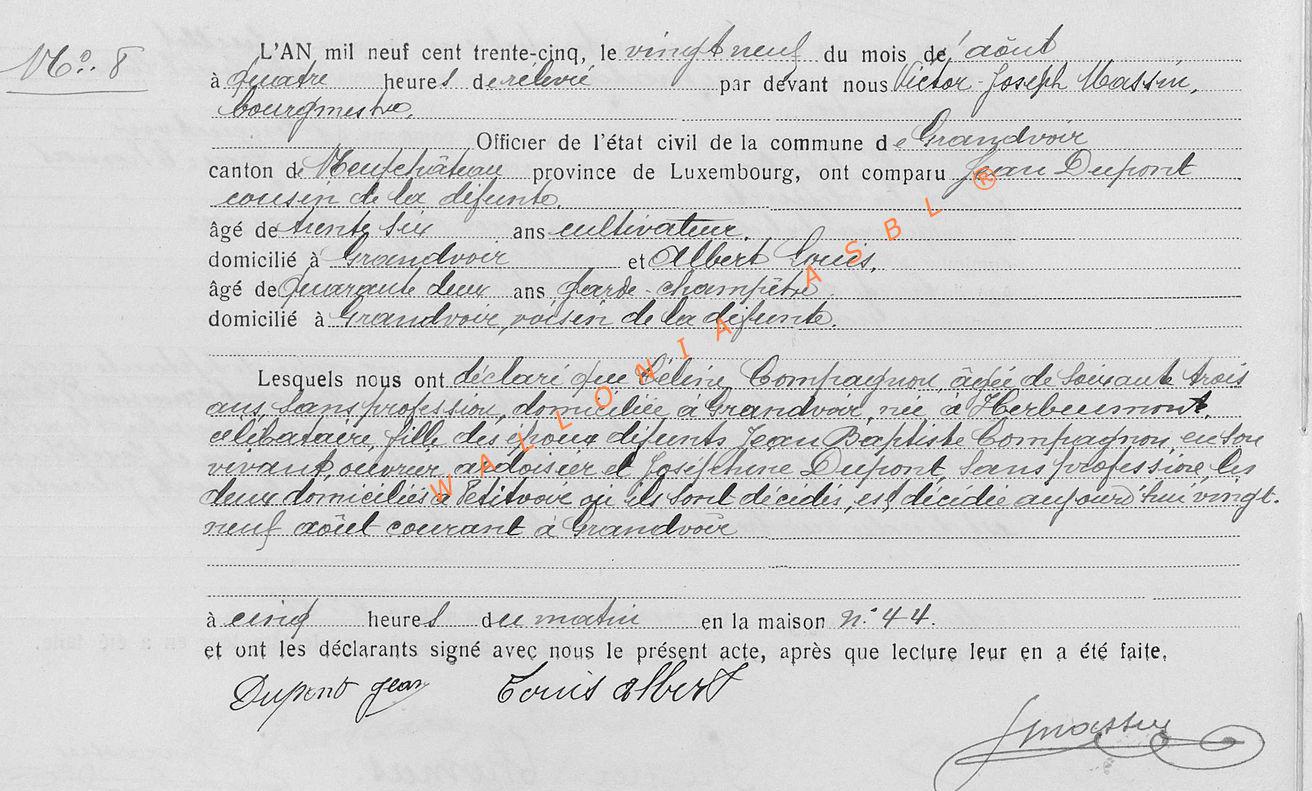 N° 8
L'AN mil neuf cent trente-cinq, le vingt neuf du mois de août
à quatre heures de relevée par devant nous Victor-Joseph Massin,
bourgmestre,
Officier de l'état civil de la commune de Grandvoir
canton de Neufchâteau province de Luxembourg, ont comparu Jean Dupont
cousin de la défunte,
âgé de trente six ans cultivateur,
domicilié à Grandvoir et Albert Louis,
âgé de quarante deux ans garde-champêtre
domicilié à Grandvoir, voisin de la défunte.
Lesquels nous ont déclaré que Céline Compagnon, âgée de soixante trois
ans, sans profession, domiciliée à Grandvoir, née à Herbeumont,
célibataire, fille des époux défunts Jean Baptiste Compagnon, en son
vivant ouvrier ardoisier et Joséphine Dupont, sans profession, les
deux domiciliés à Petitvoir où ils sont décédés, est décédée aujourd'hui vingt-
neuf août courant à Grandvoir
à cinq heures du matin en la maison n° 44.
et ont les déclarants signé avec nous le présent acte, après que lecture leur en a été faite.
Dupont Jean Louis Albert
Massin
WALLONIA ASBL ®